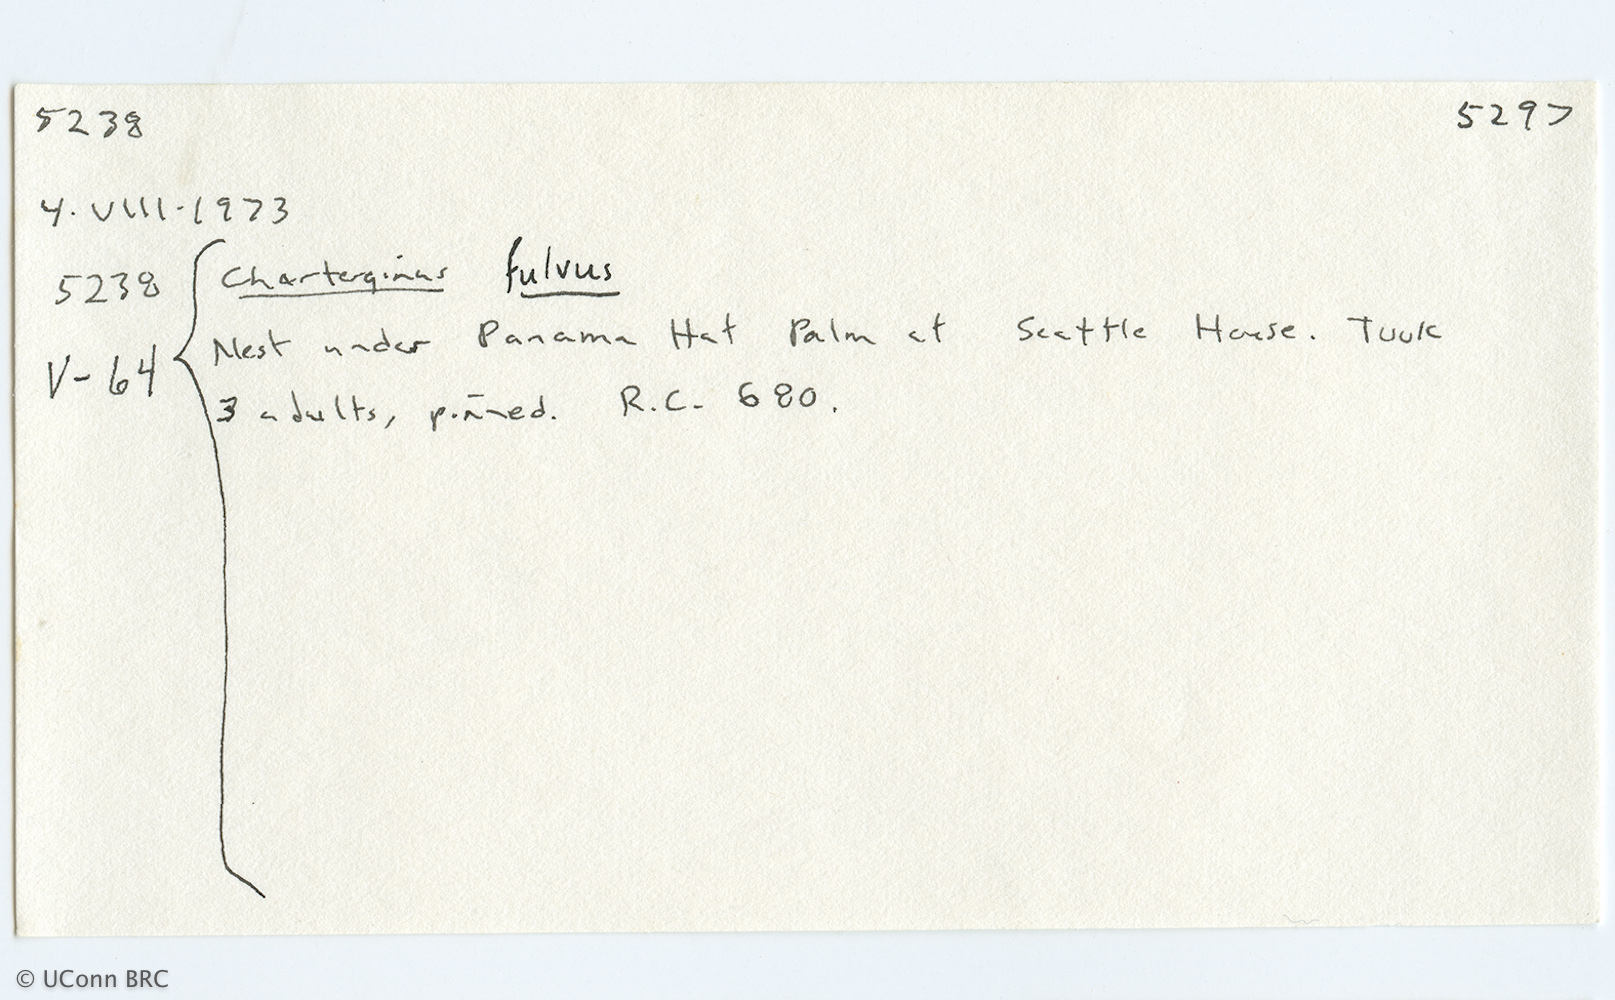 5238 5297
4. VIII-1973
5238 Charterginus fulvus
Nest under Panama Hat Palm at Seattle House. Took
V-64
3 adults, pinned. R.C. 680.
© UConn BRC